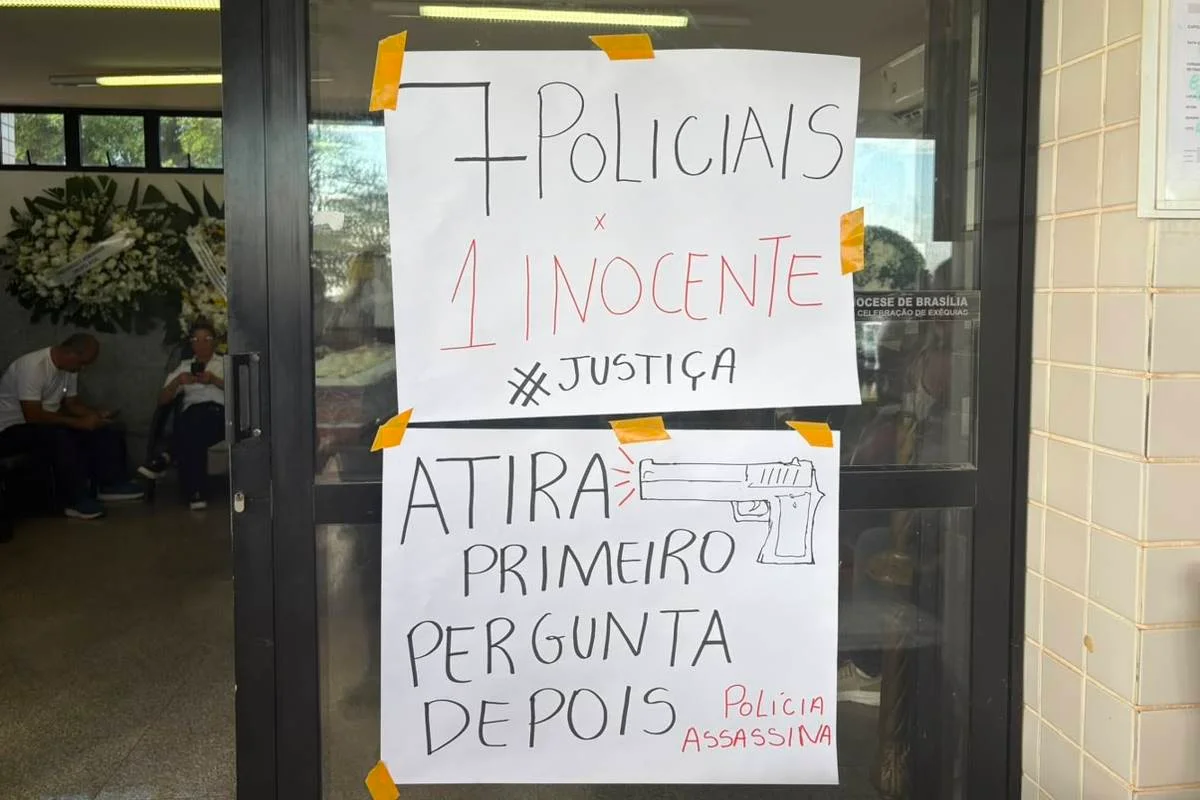 7 POLICIAIS
x
1 INOCENTE
#JUSTIÇA
OCESE DE BRASÍLIA
CELEBRAÇÃO DE EXÉQUIAS
ATIRA
PRIMEIRO
PERGUNTA
DEPOIS
POLÍCIA
ASSASSINA